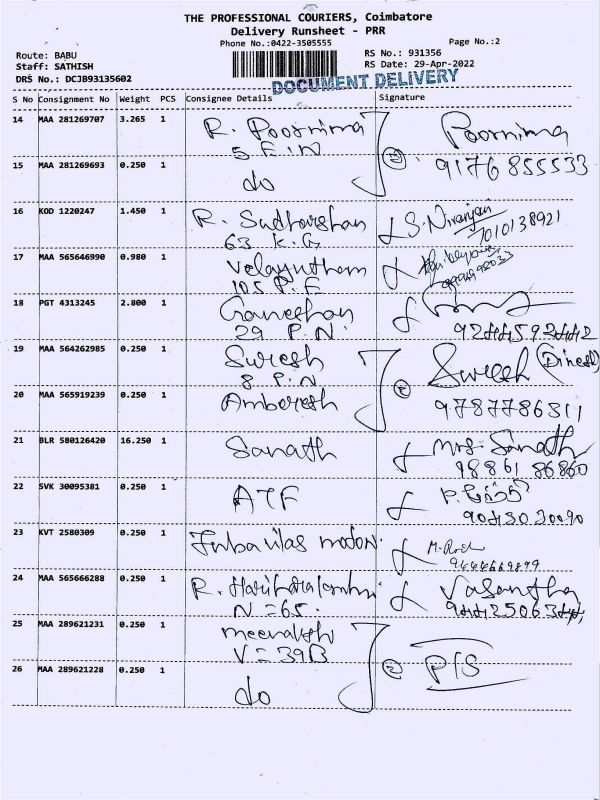 THE PROFESSIONAL COURIERS, Coimbatore
Delivery Runsheet - PRR
Phone No.:0422-3505555
Page No.:2
Route: BABU
RS No.: 931356
Staff: SATHISH
RS Date: 29-Apr-2022
DRS No.: DCJB93135602
DOCUMENT DELIVERY
S No Consignment No Weight PCS Consignee Details Signature
14 MAA 281269707 3.265 1 R. Poornima Poornima
5 F.I.N
15 MAA 281269693 0.250 1 do 9176855533
16 KOD 1220247 1.450 1 R. Sudharshan S. Niranjan
63 K.G 7010138921
17 MAA 565646990 0.980 1 Velayutham
105 P.F
18 PGT 4313245 2.800 1 Ganeshan
29 P.N.
19 MAA 564262985 0.250 1 Suresh Suresh (Dinesh)
8 P.N
20 MAA 565919239 0.250 1 Amberesh 9787786311
21 BLR 580126420 16.250 1 Sanath Mrs. Sanath
98861 86860
22 SVK 30095381 0.250 1 ATF
9045030090
23 KVT 2580309 0.250 1 motors.
9444669899
24 MAA 565666288 0.250 1 R. Vasantha
N = 65.
25 MAA 289621231 0.250 1 meenakshi
V = 39B P/S
26 MAA 289621228 0.250 1 do